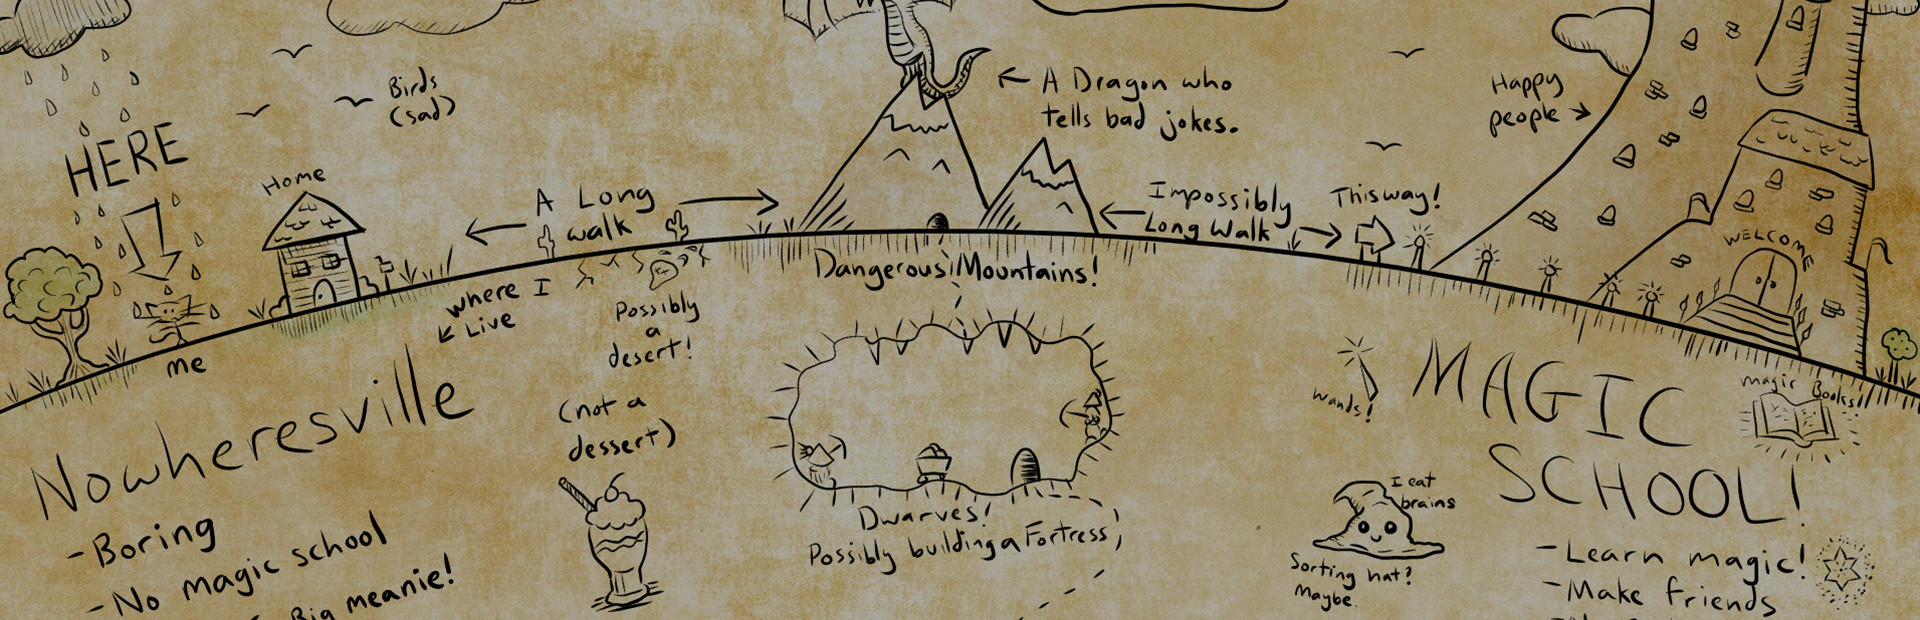 HERE
Home
me
Birds
(sad)
A Long
walk
where I
Live
Possibly
a
desert!
(not a
dessert)
Nowheresville
-Boring
-No magic school
Big meanie!
A Dragon who
tells bad jokes.
Dangerous Mountains!
Dwarves!
Possibly building a Fortress
Impossibly
Long Walk
This way!
Happy
people
WELCOME
wands!
MAGIC
SCHOOL!
magic Books!
I eat
brains
Sorting hat?
Maybe.
-Learn magic!
-Make friends